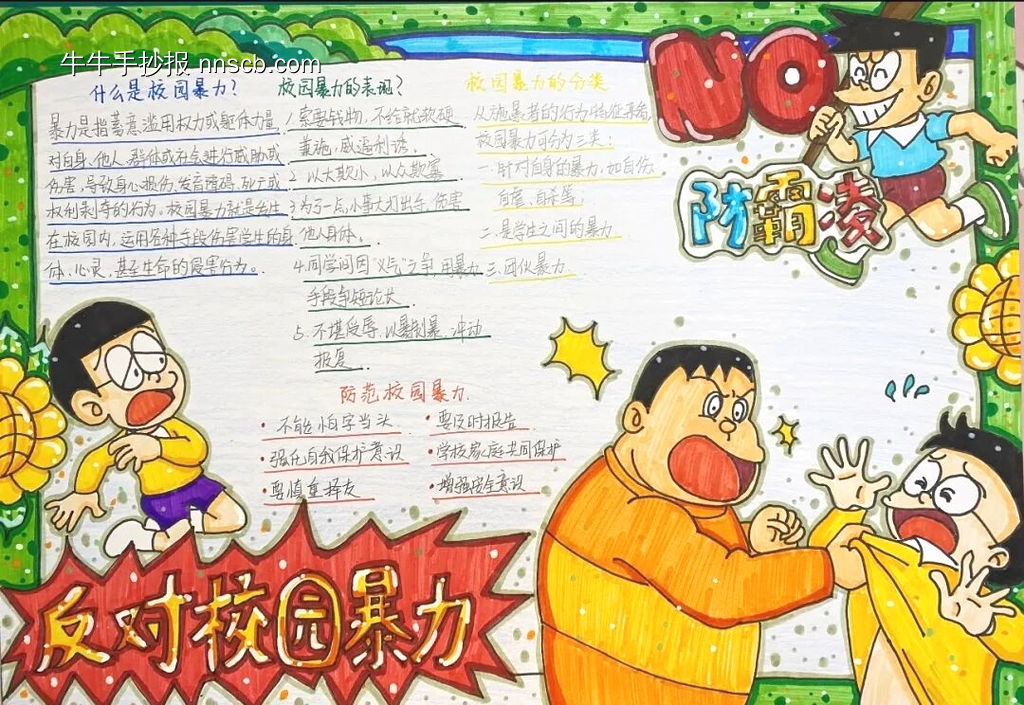 牛牛手抄报 nnscb.com
NO
防霸凌
什么是校园暴力?
暴力是指蓄意滥用权力或躯体力量,
对自身、他人、群体或社会进行威胁或
伤害,导致身心损伤、发育障碍、死亡或
权利剥夺的行为。校园暴力就是发生
在校园内,运用各种手段伤害学生的身
体、心灵,甚至生命的侵害行为。
校园暴力的表现?
1.索要钱物,不给就软硬
兼施,威逼利诱。
2.以大欺小,以众欺寡
3.为了一点小事大打出手,伤害
他人身体。
4.同学间因“义气”之争,用暴力
手段争短论长
5.不堪受辱,以暴制暴,冲动
报复。
校园暴力的分类
从施暴者的行为特征来看,
校园暴力可分为三类:
一.针对自身的暴力,如自伤、
自虐、自杀等,
二.是学生之间的暴力
三.团伙暴力
防范校园暴力
• 不能怕字当头
• 强化自我保护意识
• 要慎重择友
• 要及时报告
• 学校家庭共同保护
• 增强安全意识
反对校园暴力